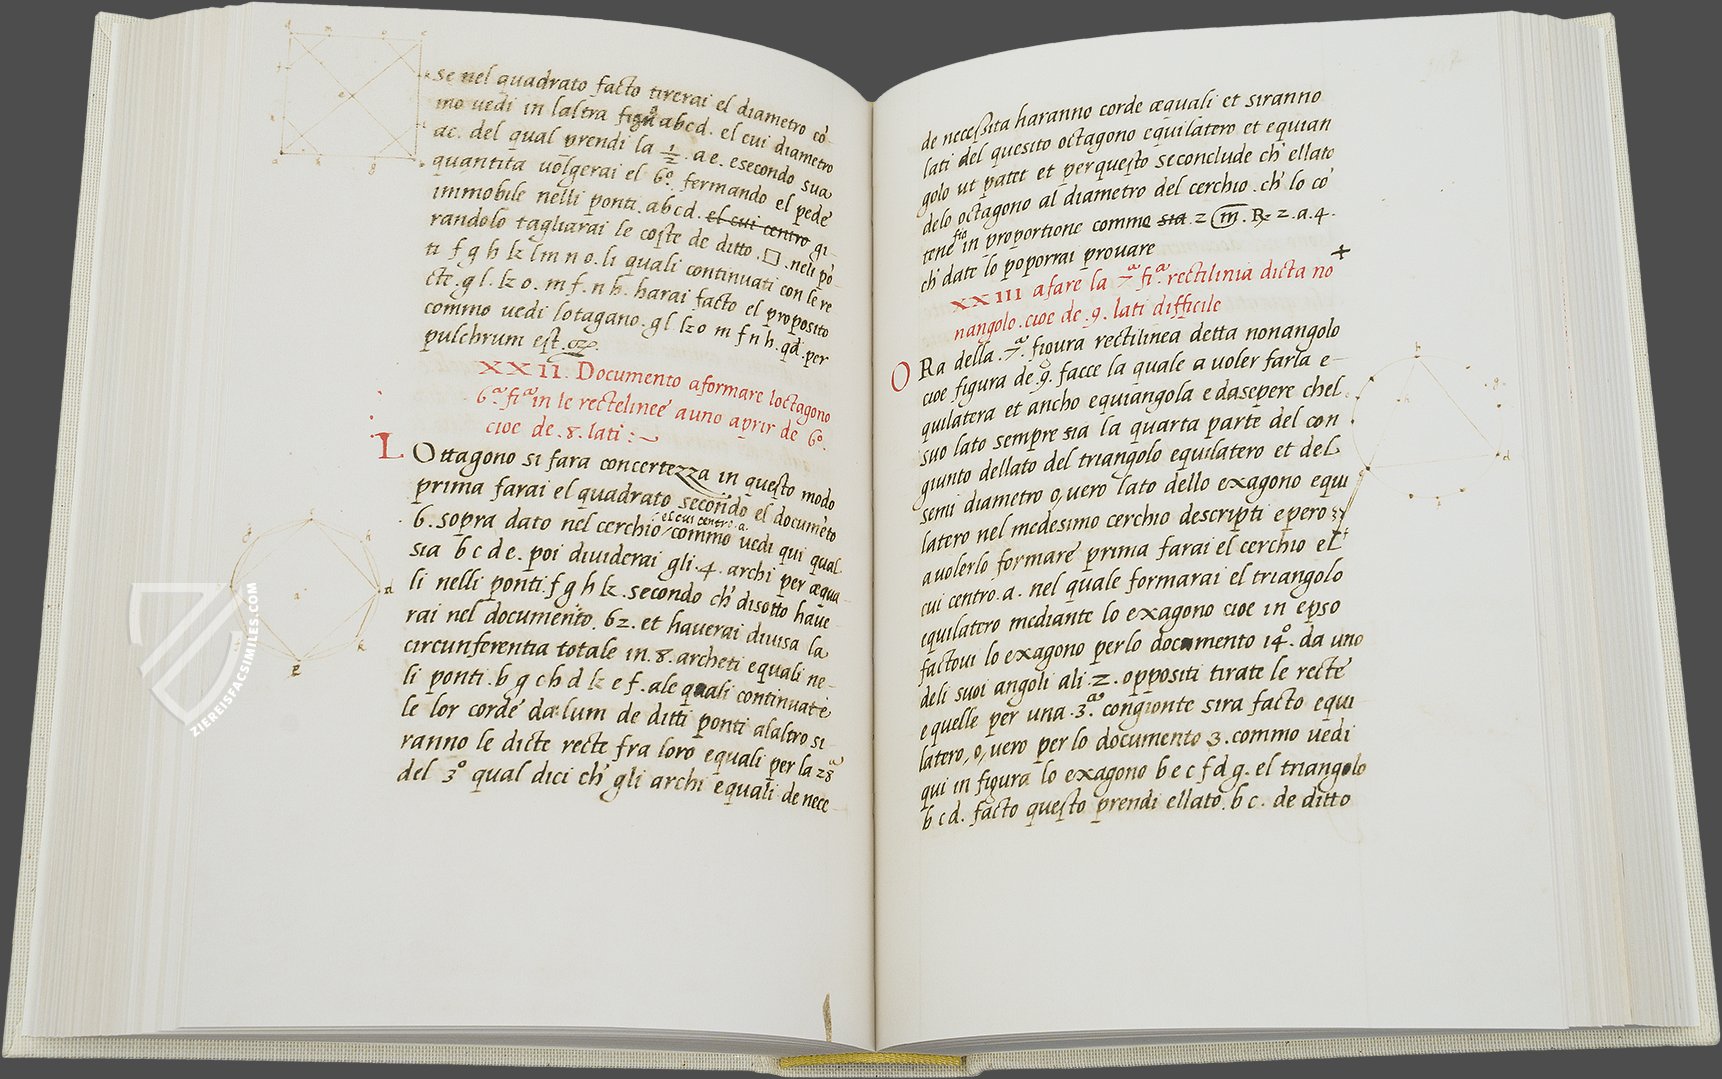 se nel quadrato facto tirerai el diametro co
mo uedi in laltra figura abcd. el cui diametro
ac. del qual prendi la 1/2. ae. esecondo sua
quantita uolgerai el 6º. fermando el pede
immobile nelli ponti. abcd. el cui centro gi
randolo tagliarai le coste de ditto. □. neli pō
ti f g h k l m n o. li quali continuati con le re
cte. g l. k o. m f. n h. harai facto el proposito
commo uedi lotagano. g l k o m f n h. qd. per
pulchrum est.
XXII. Documento aformare loctagono
6ª. fiª in le rectelinee auno aprir de 6º.
cioe de .8. lati :~
LOttagono si fara concertezza in questo modo
prima farai el quadrato secondo el documēto
6. sopra dato nel cerchio el cui centro. a. / commo uedi qui qual
sia b c d e. poi diuiderai gli .4. archi per æqua
li nelli ponti. f g h k. secondo ch' disotto haue
rai nel documento. 62. et hauerai diuisa la
circunferentia totale in .8. archeti equali ne-
li ponti. b g c h d k e f. ale quali continuate
le lor corde da lum de ditti ponti alaltro si-
ranno le dicte recte fra loro equali per la 28ª
del 3º qual dici ch' gli archi equali de nece
de necessita haranno corde æquali et siranno
lati del quesito octagono equilatero et equian
golo ut patet et perquesto seconclude ch' ellato
delo octagono al diametro del cerchio. ch' lo cō
tene sta in proportione commo sia. 2 m. R. 2. a. 4.
ch' date lo poporrai prouare
XXIII afare la 7ª fiª. rectilinia dicta no
nangolo. cioe de .9. lati difficile
ORa della .7ª. figura rectilinea detta nonangolo
cioe figura de .9. facce la quale a uoler farla e-
quilatera et ancho equiangola e dasepere chel
suo lato sempre sia la quarta parte del con
giunto dellato del triangolo equilatero et del
semi diametro o, uero lato dello exagono equi
latero nel medesimo cerchio descripti e pero
auolerlo formare prima farai el cerchio el
cui centro. a. nel quale formarai el triangolo
equilatero mediante lo exagono cioe in epso
factoui lo exagono perlo documento 14º. da uno
deli suoi angoli ali .2. oppositi tirate le recte
e quelle per una .3ª. congionte sira facto equi
latero, o, uero per lo documento 3. commo uedi
qui in figura lo exagono b e c f d g. el triangolo
b c d. facto questo prendi ellato. b c. de ditto
ZIEREISFACSIMILES.COM